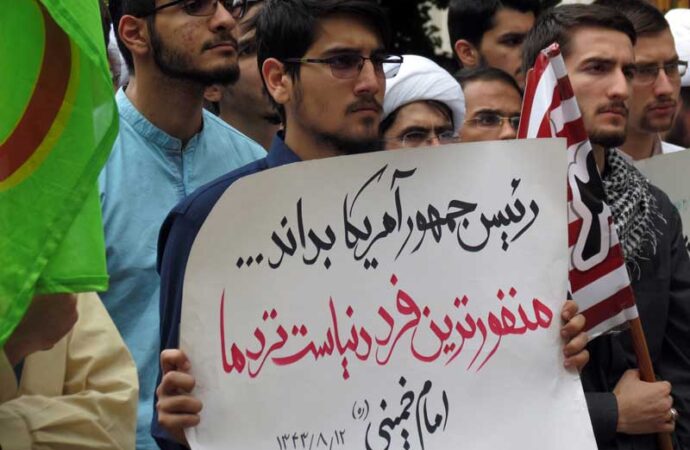 رئیس جمهور آمریکا بداند...
منفورترین فرد دنیاست نزد ما
امام خمینی (ره)
۱۳۴۳/۸/۱۲